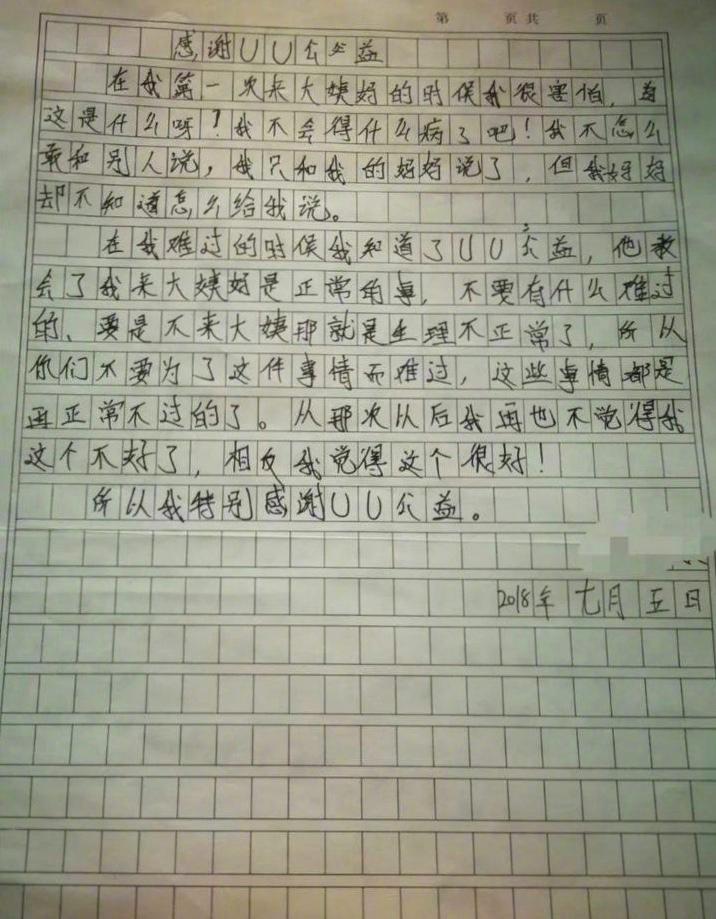 第 页共 页
感谢UU公益
在我第一次来大姨妈的时候我很害怕,
这是什么呀?我不会得什么病了吧!我不怎么
敢和别人说,我只和我的妈妈说了,但我妈妈
却不知道怎么给我说。
在我难过的时候我知道了UU公益,他教
会了我来大姨妈是正常的事,不要有什么难过
的、要是不来大姨那就是生理不正常了,所以
你们不要为了这件事情而难过,这些事情都是
再正常不过的了。从那次以后我再也不觉得我
这个不好了,相反我觉得这个很好!
所以我特别感谢UU公益。
2018年七月五日